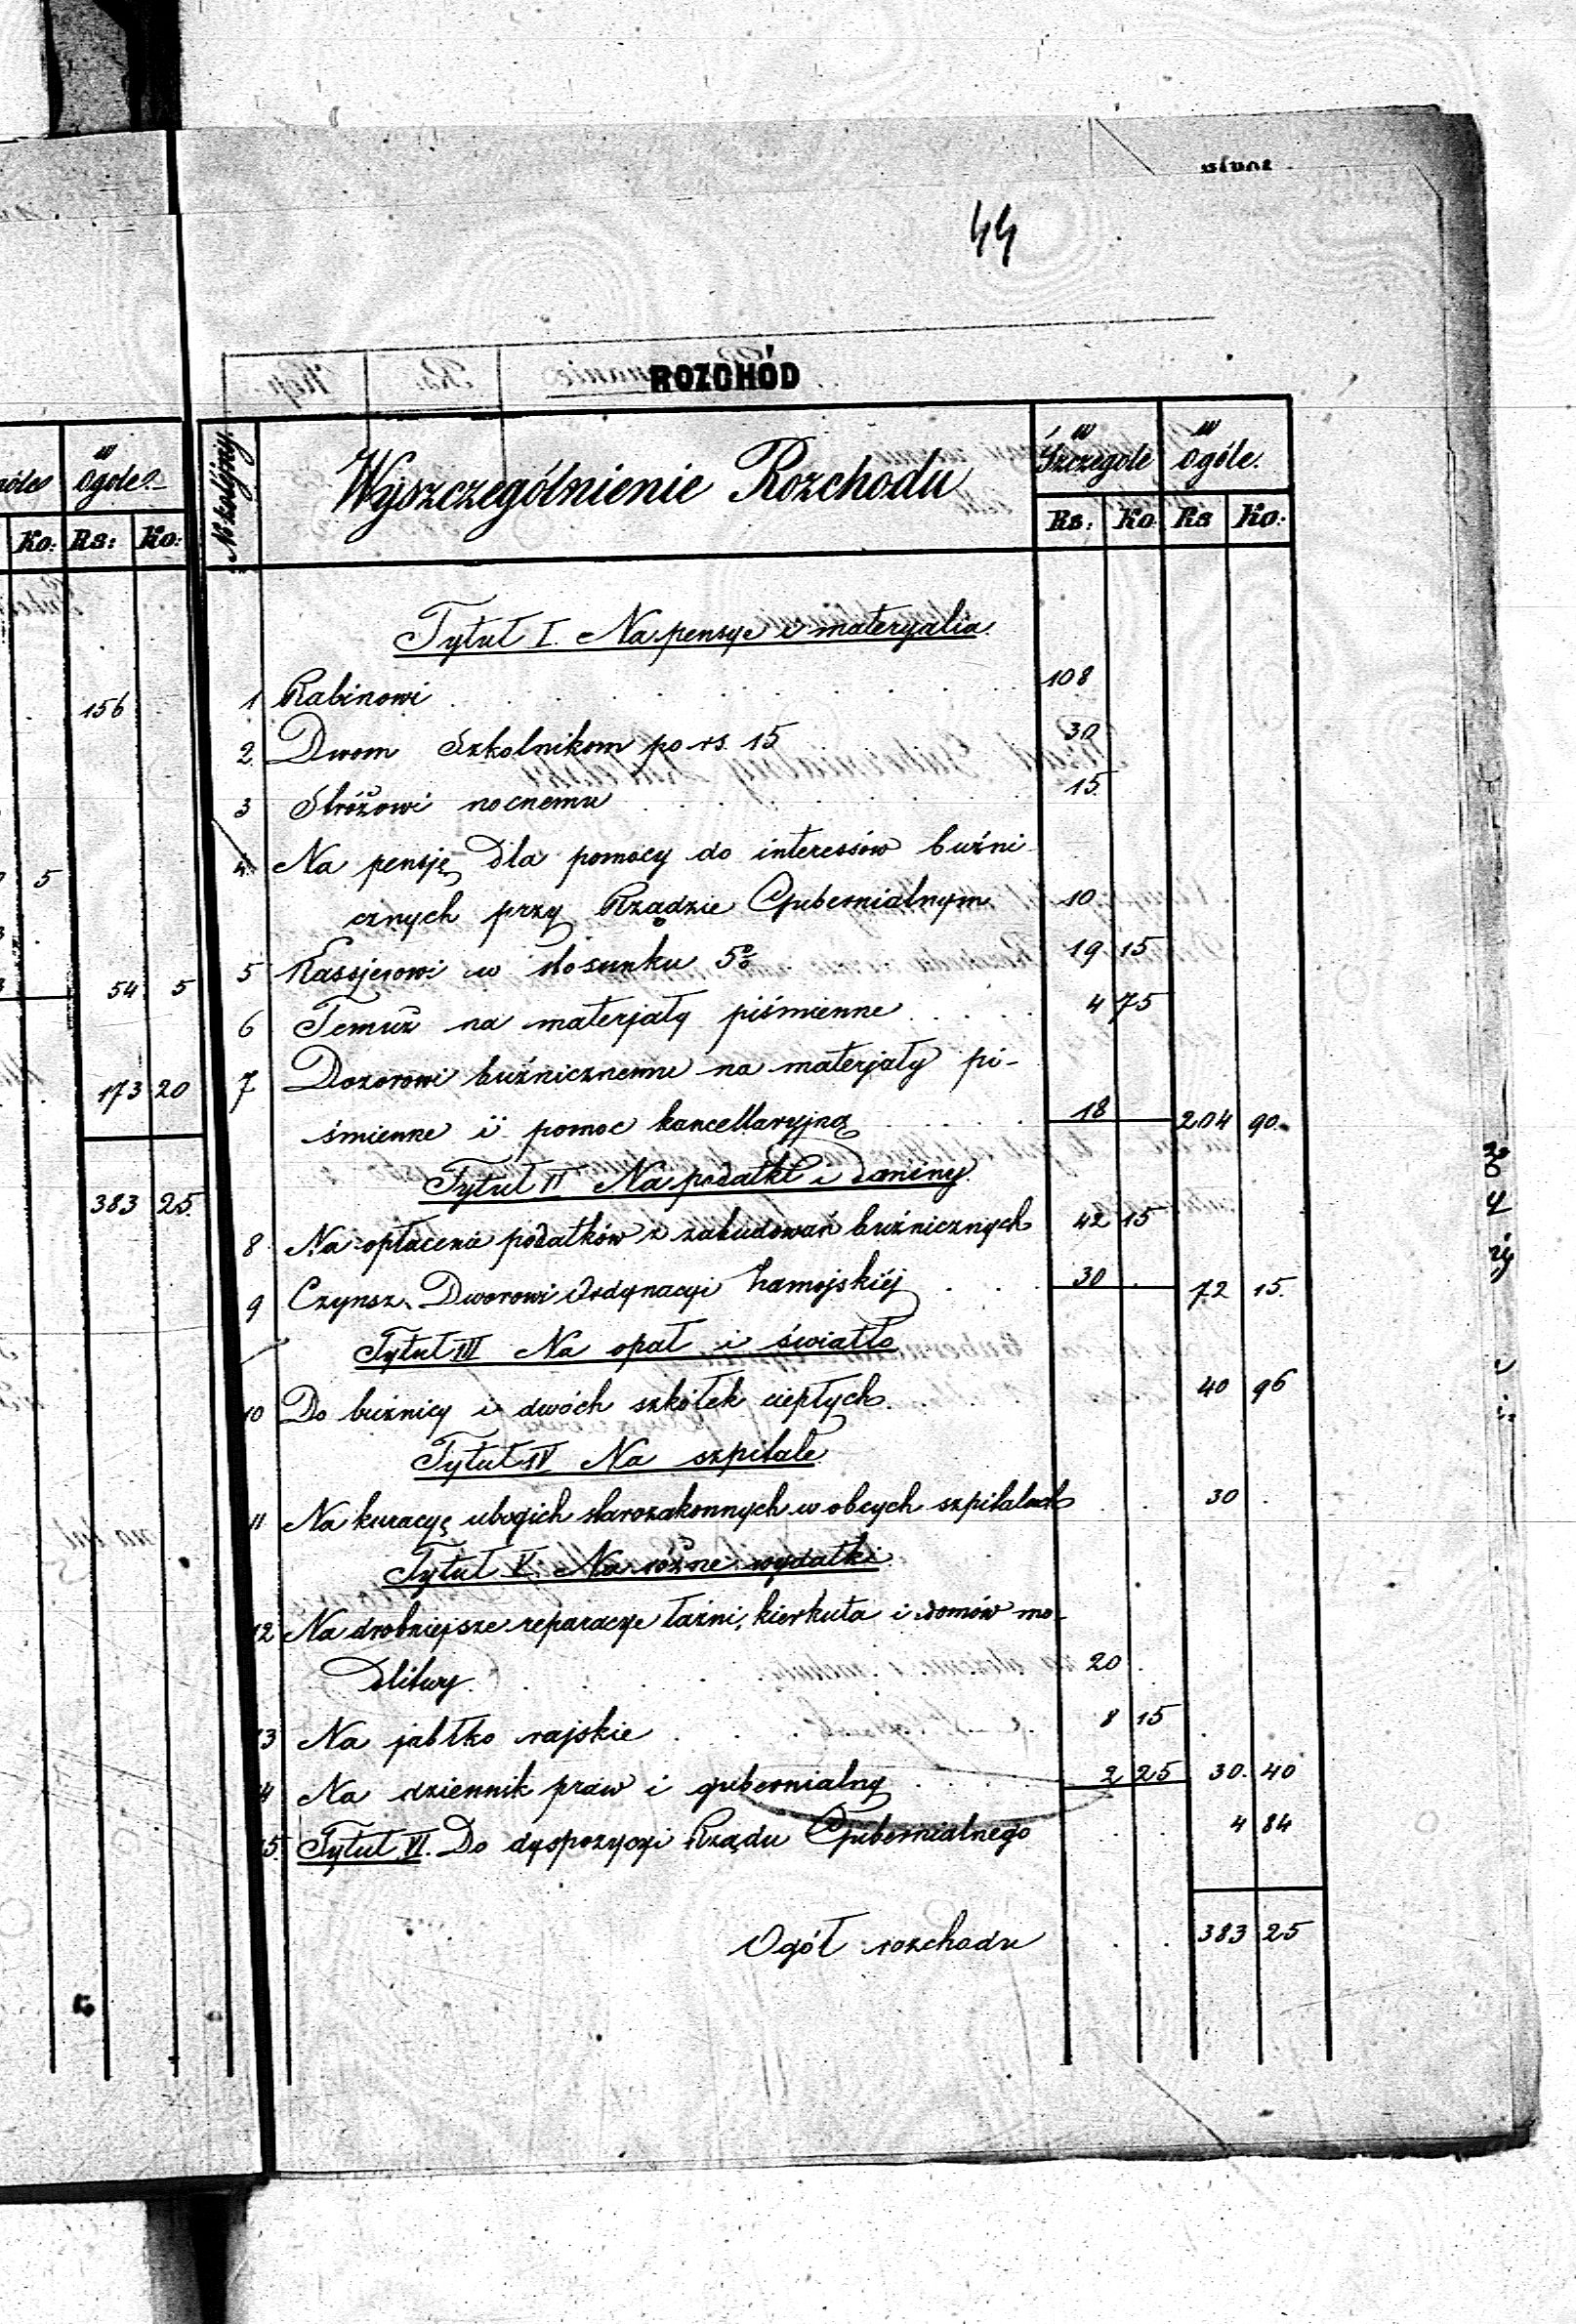 44
ROZCHÓD
№ kolejny. Wyszczególnienie Rozchodu w Szczególe w Ogóle.
Rs: Ko Rs Ko:
Tytuł I. Na pensye i materyalia.
1 Rabinowi 108
2. Dwom Szkolnikom po rs. 15 30
3 Stróżowi nocnemu 15.
4. Na pensję Dla pomocy do interessów buźni
cznych przy Rządzie Gubernialnym 10
5 Kassjerowi w stosunku 5% 19 15
6 Temuż na materjały piśmienne 4 75
7 Dozorowi buźnicznemu na materjały pi-
śmienne i pomoc kancellaryjną 18 204 90.
Tytuł II Na podatki i daniny.
8 Na opłacenie podatków z zabudowań buźnicznych 42 15
9 Czynsz Dworowi Ordynacyi Zamojskiéj 30 . 72 15.
Tytuł III Na opał i światło
10 Do buźnicy i dwóch szkółek ciepłych. 40 96
Tytuł IV Na szpitale
11 Na kuracyę ubogich starozakonnych w obcych szpitalach 30 .
Tytuł V. Na różne wydatki
12 Na drobniejsze reparacye łaźni, kierkuta i domów mo-
Dlitwy. 20 .
13 Na jabłko rajskie 8 15
14 Na dziennik praw i gubernialny 2 25 30. 40
15. Tytuł VI. Do dyspozycyi Rządu Gubernialnego 4 84
Ogół rozchodu 383 25
w
Ogóle.
Ko: Rs: Ko:
156
5
54 5
173 20
383 25.